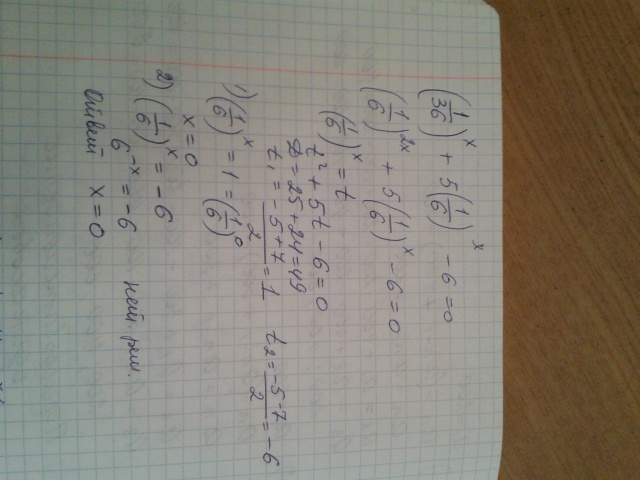 (1/36)^x + 5(1/6)^x - 6 = 0
(1/6)^2x + 5(1/6)^x - 6 = 0
(1/6)^x = t
t² + 5t - 6 = 0
D = 25 + 24 = 49
t₁ = (-5 + 7)/2 = 1 t₂ = (-5 - 7)/2 = -6
1) (1/6)^x = 1 = (1/6)^0
x = 0
2) (1/6)^x = -6
6^-x = -6 нет реш.
Ответ x = 0